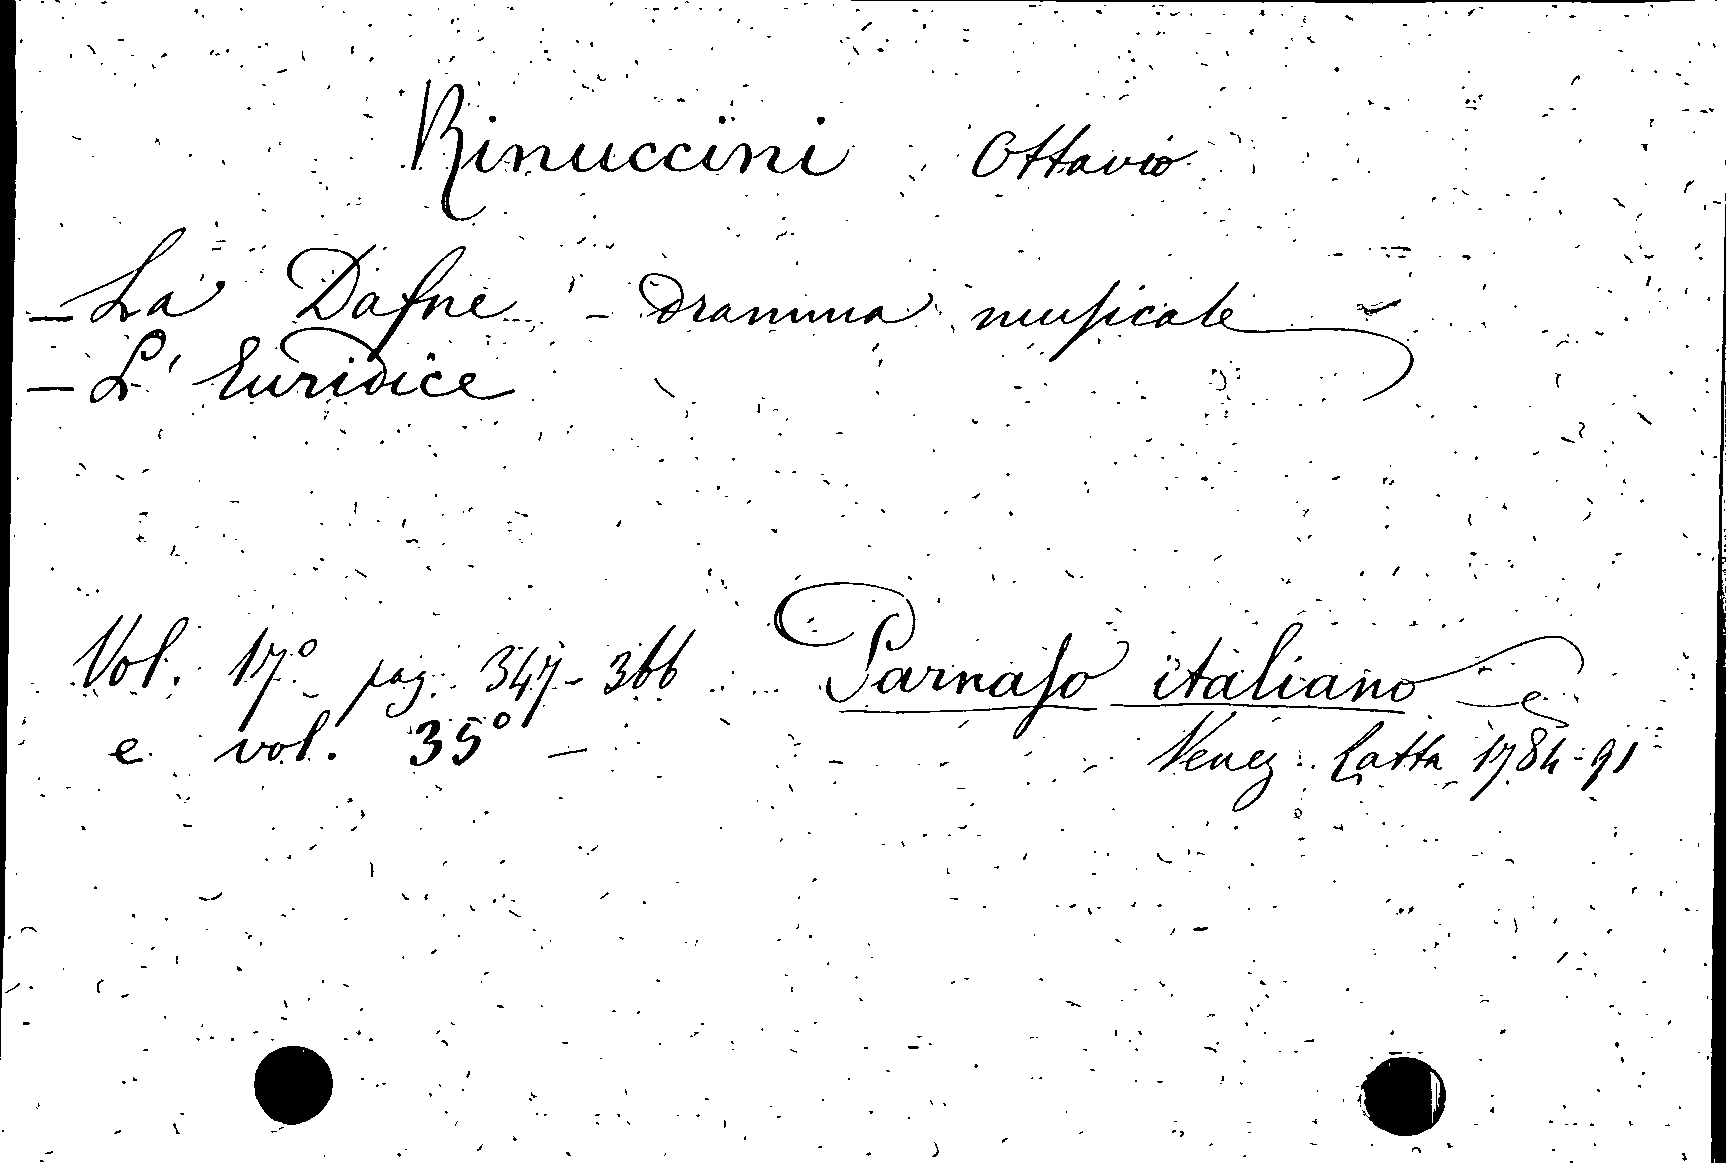 Rinuccini Ottavio
- La Dafne - dramma musicale
- L' Euridice
Vol. 17° pag. 347-366 Parnaso italiano
e vol. 35° - Venez. Zatta 1784-91